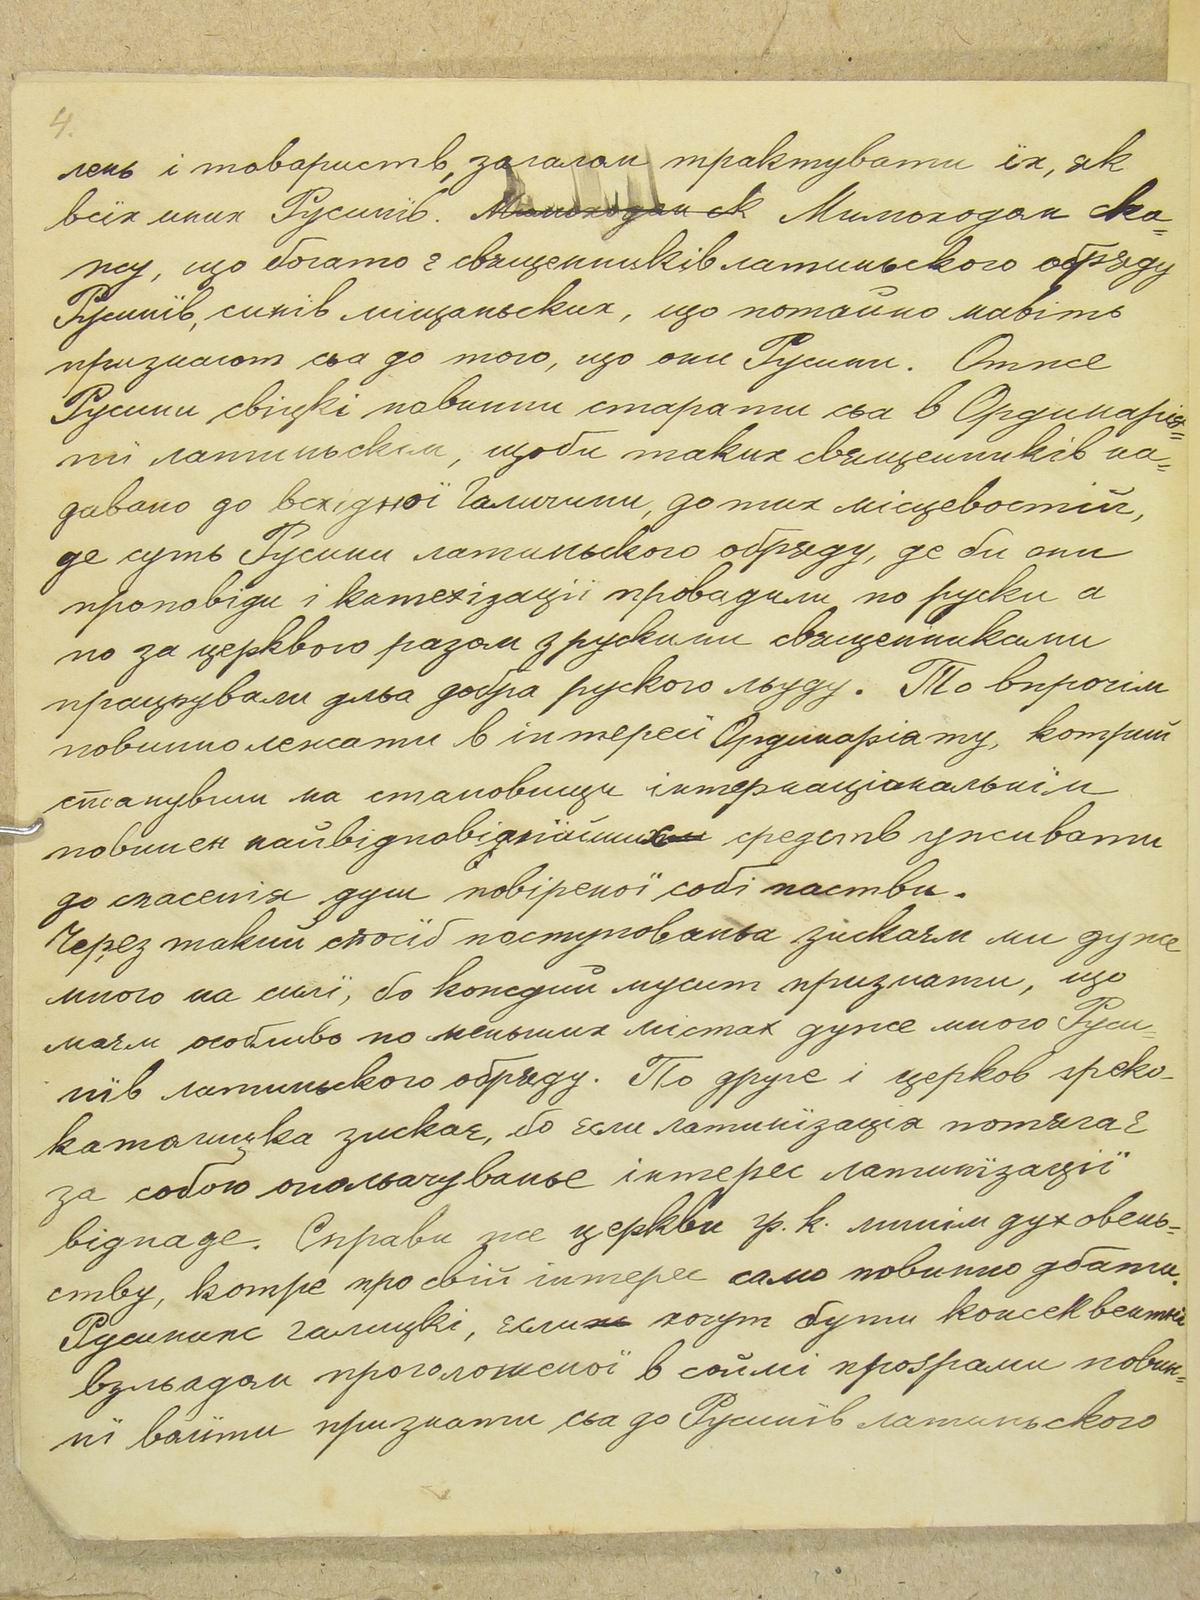 4.
лень і товариств, загалом трактувати їх, як
всїх иних Русинїв. Мимоходом ск Мимоходом ска-
жу, що богато є священників латиньского обряду
Русинїв, синів міщаньских, що потайно навіть
признают сьа до того, що они Русини. Отже
Русини свіцкі повинни старати сьа в Ординарія-
тї латиньскім, щоби таких священників на-
давано до всхідної Галичини, до тих місцевостий,
де суть Русини латиньского обряду, де би они
проповіди і катехізациї провадили по руски а
по за церквою разом з рускими священниками
працьували дльа добра руского льуду. То впрочім
повинно лежати в інтересї Ординаріяту, котрий
станувши на становищи інтернаціональнїм
повинен найвідповіднїйших средств уживати
до спасенія душ повіреної собі паства.
Через такий спосїб поступованьа зискаєм ми дуже
много на силї, бо кождий мусит признати, що
маєм особливо по меньших містах дуже много Руси-
нїв латиньского обряду. По друге і церков греко-
католицка зискає, бо єсли латинїзація потягає
за собою опольачуванье інтерес латинїзації
відпаде. Справи же церкви гр. к. лишім духовень-
ству, котре про свій інтерес само повинно дбати.
Русини галицкі, єсли хочут бути консеквентні
взльадом проголошеної в соймі проґрами повин-
нї вайти признати сьа до Русинїв латиньского